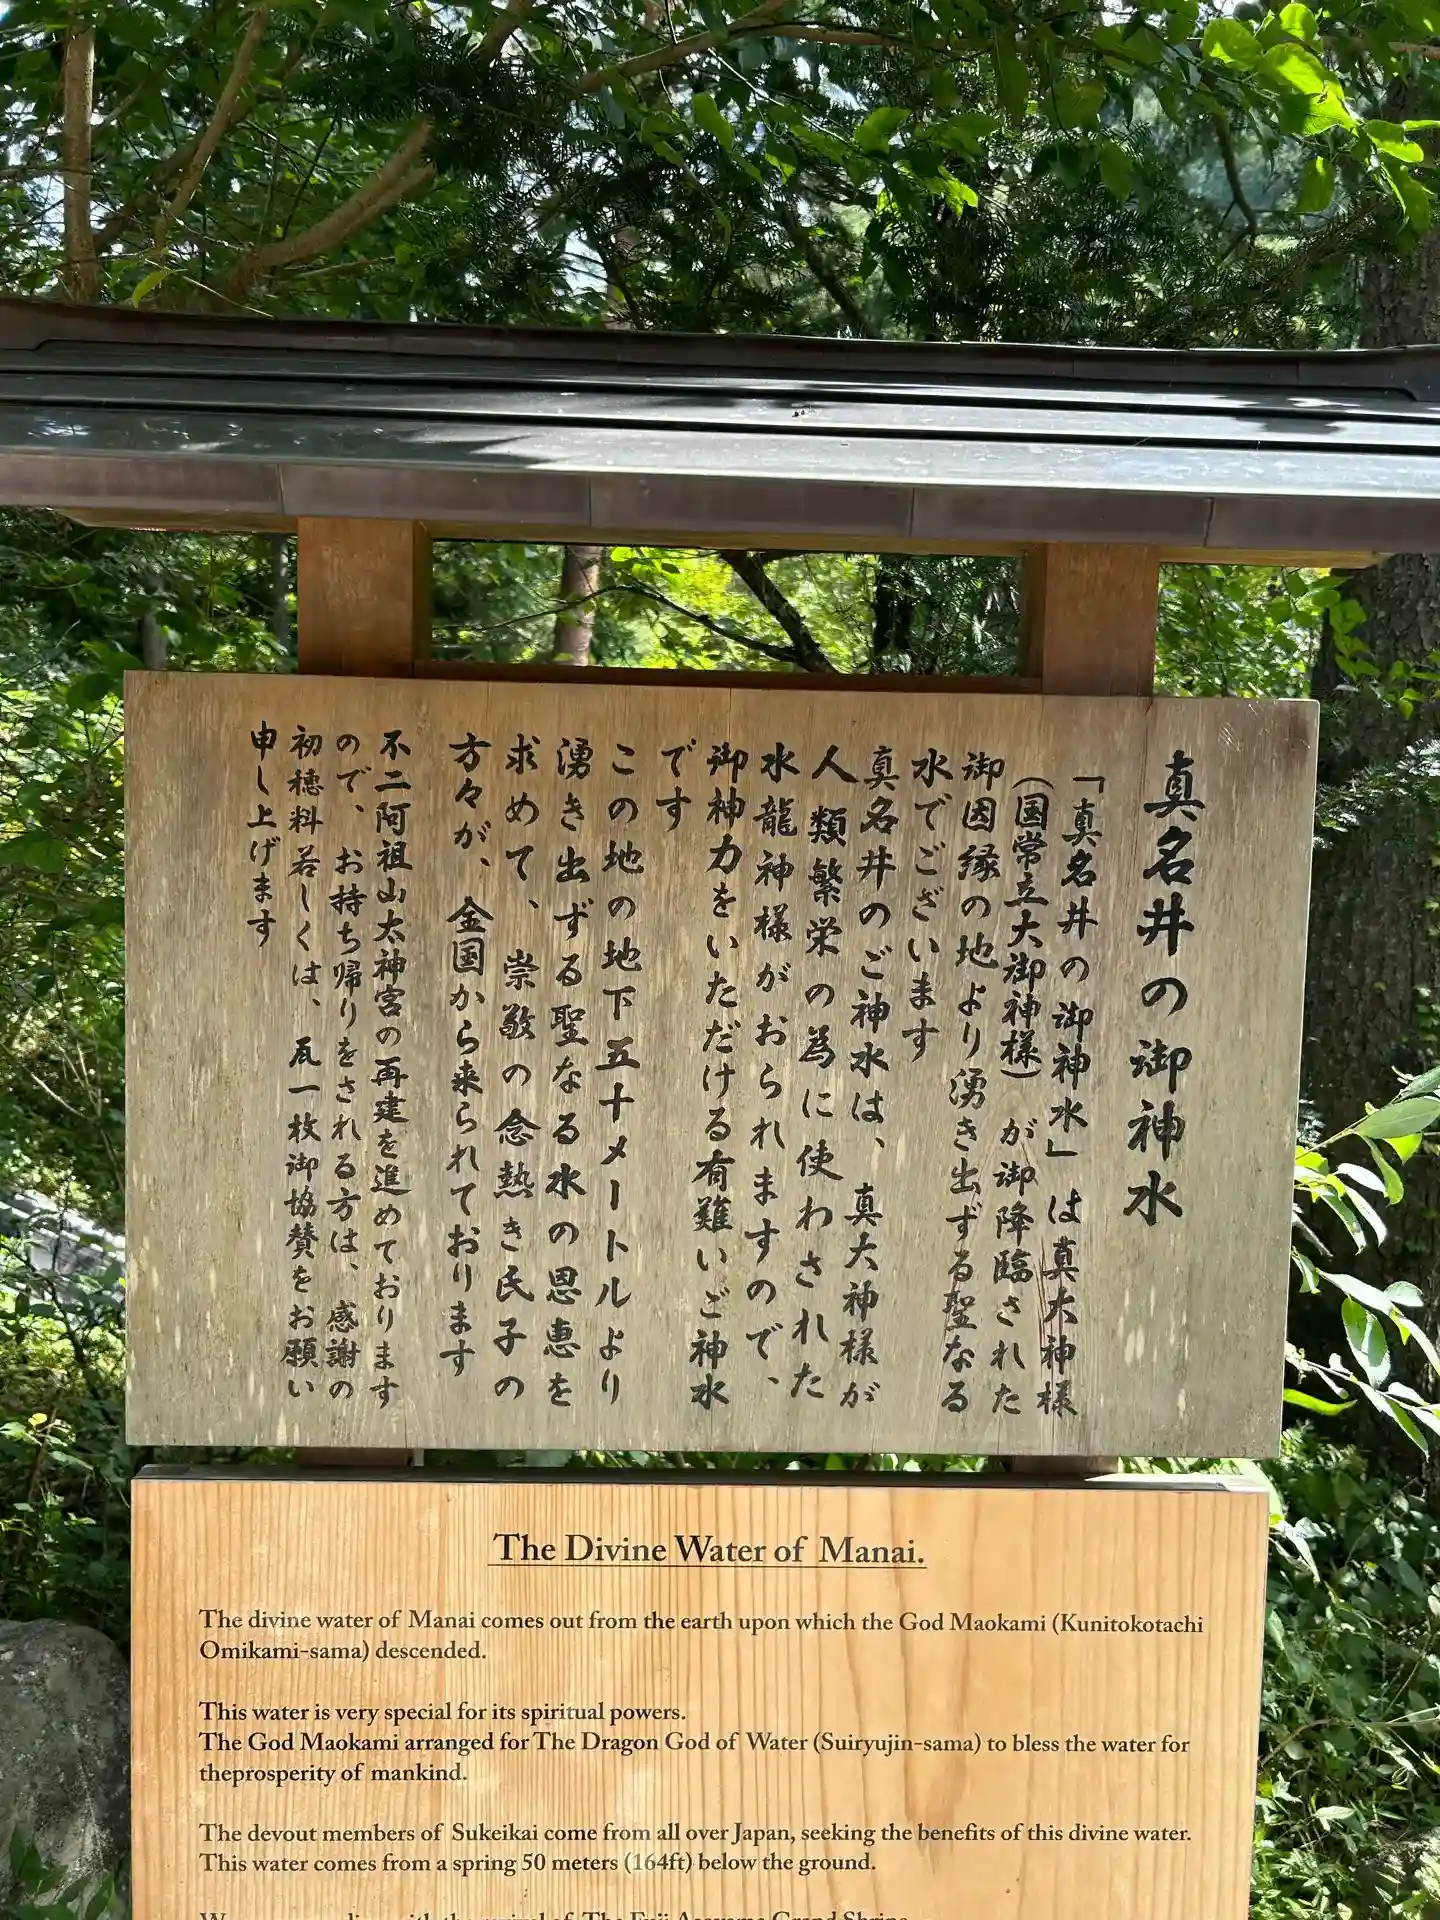 真名井の御神水
「真名井の御神水」は真大神様
(国常立大御神様)が御降臨された
御因縁の地より湧き出ずる聖なる
水でございます
真名井のご神水は、真大神様が
人類繁栄の為に使わされた
水龍神様がおられますので、
御神力をいただける有難いご神水
です
この地の地下五十メートルより
湧き出ずる聖なる水の恩恵を
求めて、崇敬の念熱き氏子の
方々が、全国から来られております
不二阿祖山太神宮の再建を進めております
ので、お持ち帰りをされる方は、感謝の
初穂料若しくは、瓦一枚御協賛をお願い
申し上げます
The Divine Water of Manai.
The divine water of Manai comes out from the earth upon which the God Maokami (Kunitokotachi
Omikami-sama) descended.
This water is very special for its spiritual powers.
The God Maokami arranged for The Dragon God of Water (Suiryujin-sama) to bless the water for
theprosperity of mankind.
The devout members of Sukeikai come from all over Japan, seeking the benefits of this divine water.
This water comes from a spring 50 meters (164ft) below the ground.